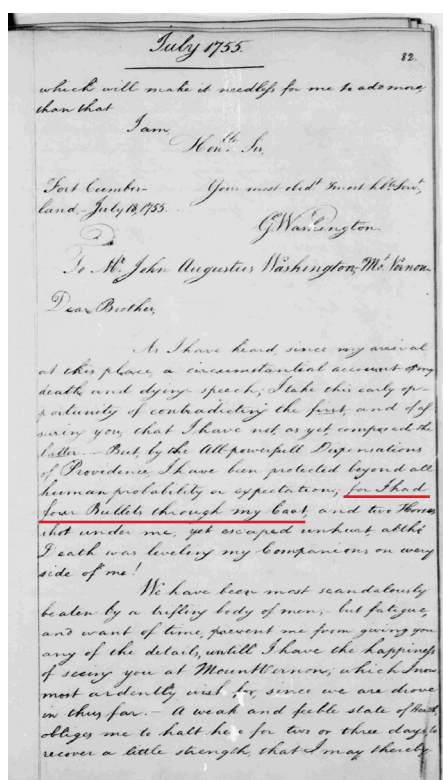 July 1755.
82.
which will make it needless for me to add more
than that
I am
Hon.ble Sir,
Fort Cumber- Your most obed.t & most h.ble Serv.t
land, July 18, 1755.
G. Washington
To M.r John Augustus Washington, M.t Vernon.
Dear Brother,
As I have heard, since my arrival
at this place, a circumstantial account of my
death and dying speech, I take this early op-
portunity of contradicting the first, and of as-
suring you, that I have not, as yet composed the
latter. — But, by the All-powerfull Dispensations
of Providence, I have been protected beyond all
human probability or expectation; for I had
four Bullets through my Coat, and two Horses
shot under me, yet escaped unhurt, altho'
Death was leveling my Companions on every
side of me!
We have been most scandalously
beaten by a trifling body of men; but fatigue,
and want of time, prevent me from giving you
any of the details, untill I have the happiness
of seeing you at Mount Vernon; which I now
most ardently wish for, since we are drove
in thus far. — A weak and feeble state of Health,
obliges me to halt here for two or three days, to
recover a little strength, that I may thereby